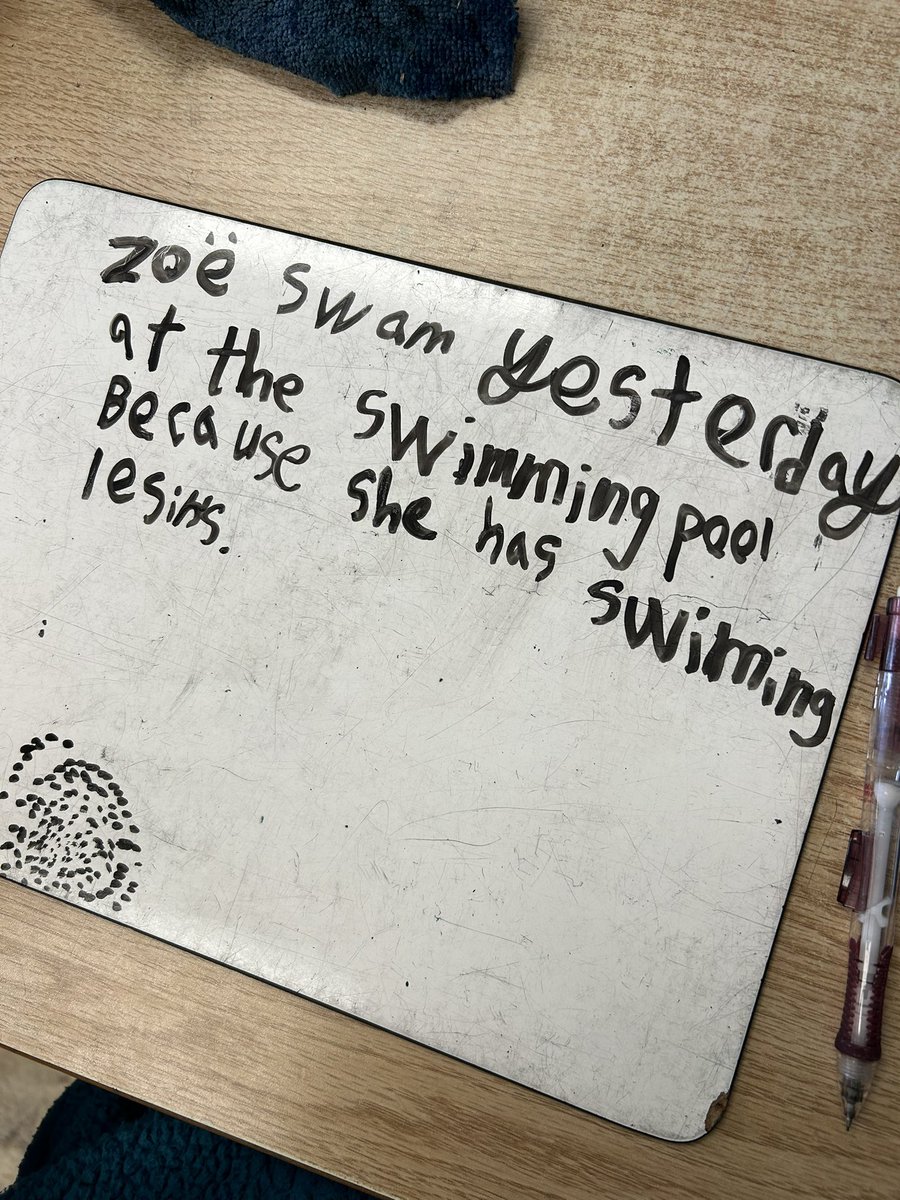 zoë swam yesterday
at the swimming pool
Because she has swiming
lesins.